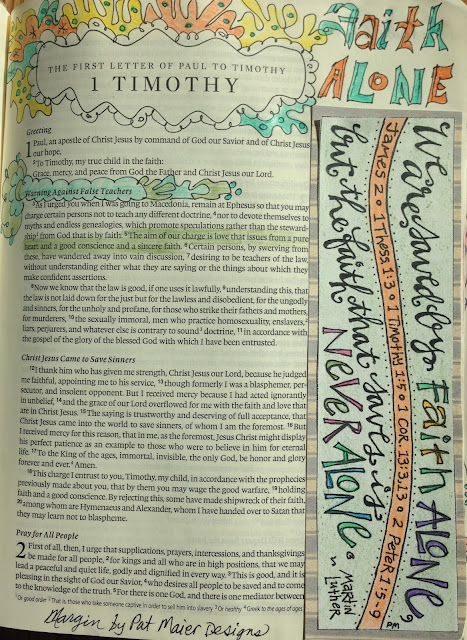 Faith
ALONE
THE FIRST LETTER OF PAUL TO TIMOTHY
1 TIMOTHY
Greeting
1 Paul, an apostle of Christ Jesus by command of God our Savior and of Christ Jesus
our hope,
2 To Timothy, my true child in the faith:
Grace, mercy, and peace from God the Father and Christ Jesus our Lord.
Warning Against False Teachers
3 As I urged you when I was going to Macedonia, remain at Ephesus so that you may
charge certain persons not to teach any different doctrine, 4 nor to devote themselves to
myths and endless genealogies, which promote speculations rather than the steward-
ship1 from God that is by faith. 5 The aim of our charge is love that issues from a pure
heart and a good conscience and a sincere faith. 6 Certain persons, by swerving from
these, have wandered away into vain discussion, 7 desiring to be teachers of the law,
without understanding either what they are saying or the things about which they
make confident assertions.
8 Now we know that the law is good, if one uses it lawfully, 9 understanding this, that
the law is not laid down for the just but for the lawless and disobedient, for the ungodly
and sinners, for the unholy and profane, for those who strike their fathers and mothers,
for murderers, 10 the sexually immoral, men who practice homosexuality, enslavers,2
liars, perjurers, and whatever else is contrary to sound3 doctrine, 11 in accordance with
the gospel of the glory of the blessed God with which I have been entrusted.
Christ Jesus Came to Save Sinners
12 I thank him who has given me strength, Christ Jesus our Lord, because he judged
me faithful, appointing me to his service, 13 though formerly I was a blasphemer, per-
secutor, and insolent opponent. But I received mercy because I had acted ignorantly
in unbelief, 14 and the grace of our Lord overflowed for me with the faith and love that
are in Christ Jesus. 15 The saying is trustworthy and deserving of full acceptance, that
Christ Jesus came into the world to save sinners, of whom I am the foremost. 16 But
I received mercy for this reason, that in me, as the foremost, Jesus Christ might display
his perfect patience as an example to those who were to believe in him for eternal
life. 17 To the King of the ages, immortal, invisible, the only God, be honor and glory
forever and ever.4 Amen.
18 This charge I entrust to you, Timothy, my child, in accordance with the prophecies
previously made about you, that by them you may wage the good warfare, 19 holding
faith and a good conscience. By rejecting this, some have made shipwreck of their faith,
20 among whom are Hymenaeus and Alexander, whom I have handed over to Satan that
they may learn not to blaspheme.
Pray for All People
2 First of all, then, I urge that supplications, prayers, intercessions, and thanksgivings
be made for all people, 2 for kings and all who are in high positions, that we may
lead a peaceful and quiet life, godly and dignified in every way. 3 This is good, and it is
pleasing in the sight of God our Savior, 4 who desires all people to be saved and to come
to the knowledge of the truth. 5 For there is one God, and there is one mediator between
1 Or good order 2 That is, those who take someone captive in order to sell him into slavery 3 Or healthy 4 Greek to the ages of ages
Margin by Pat Maier Designs
We are saved by FAITH ALONE,
James 2 o 1 Thess 1:3 o 1 Timothy 1:5 o 1 Cor. 13:3,13 o 2 Peter 1:5-9
but the faith that saves us is
NEVER ALONE.
~ Martin
Luther
PM